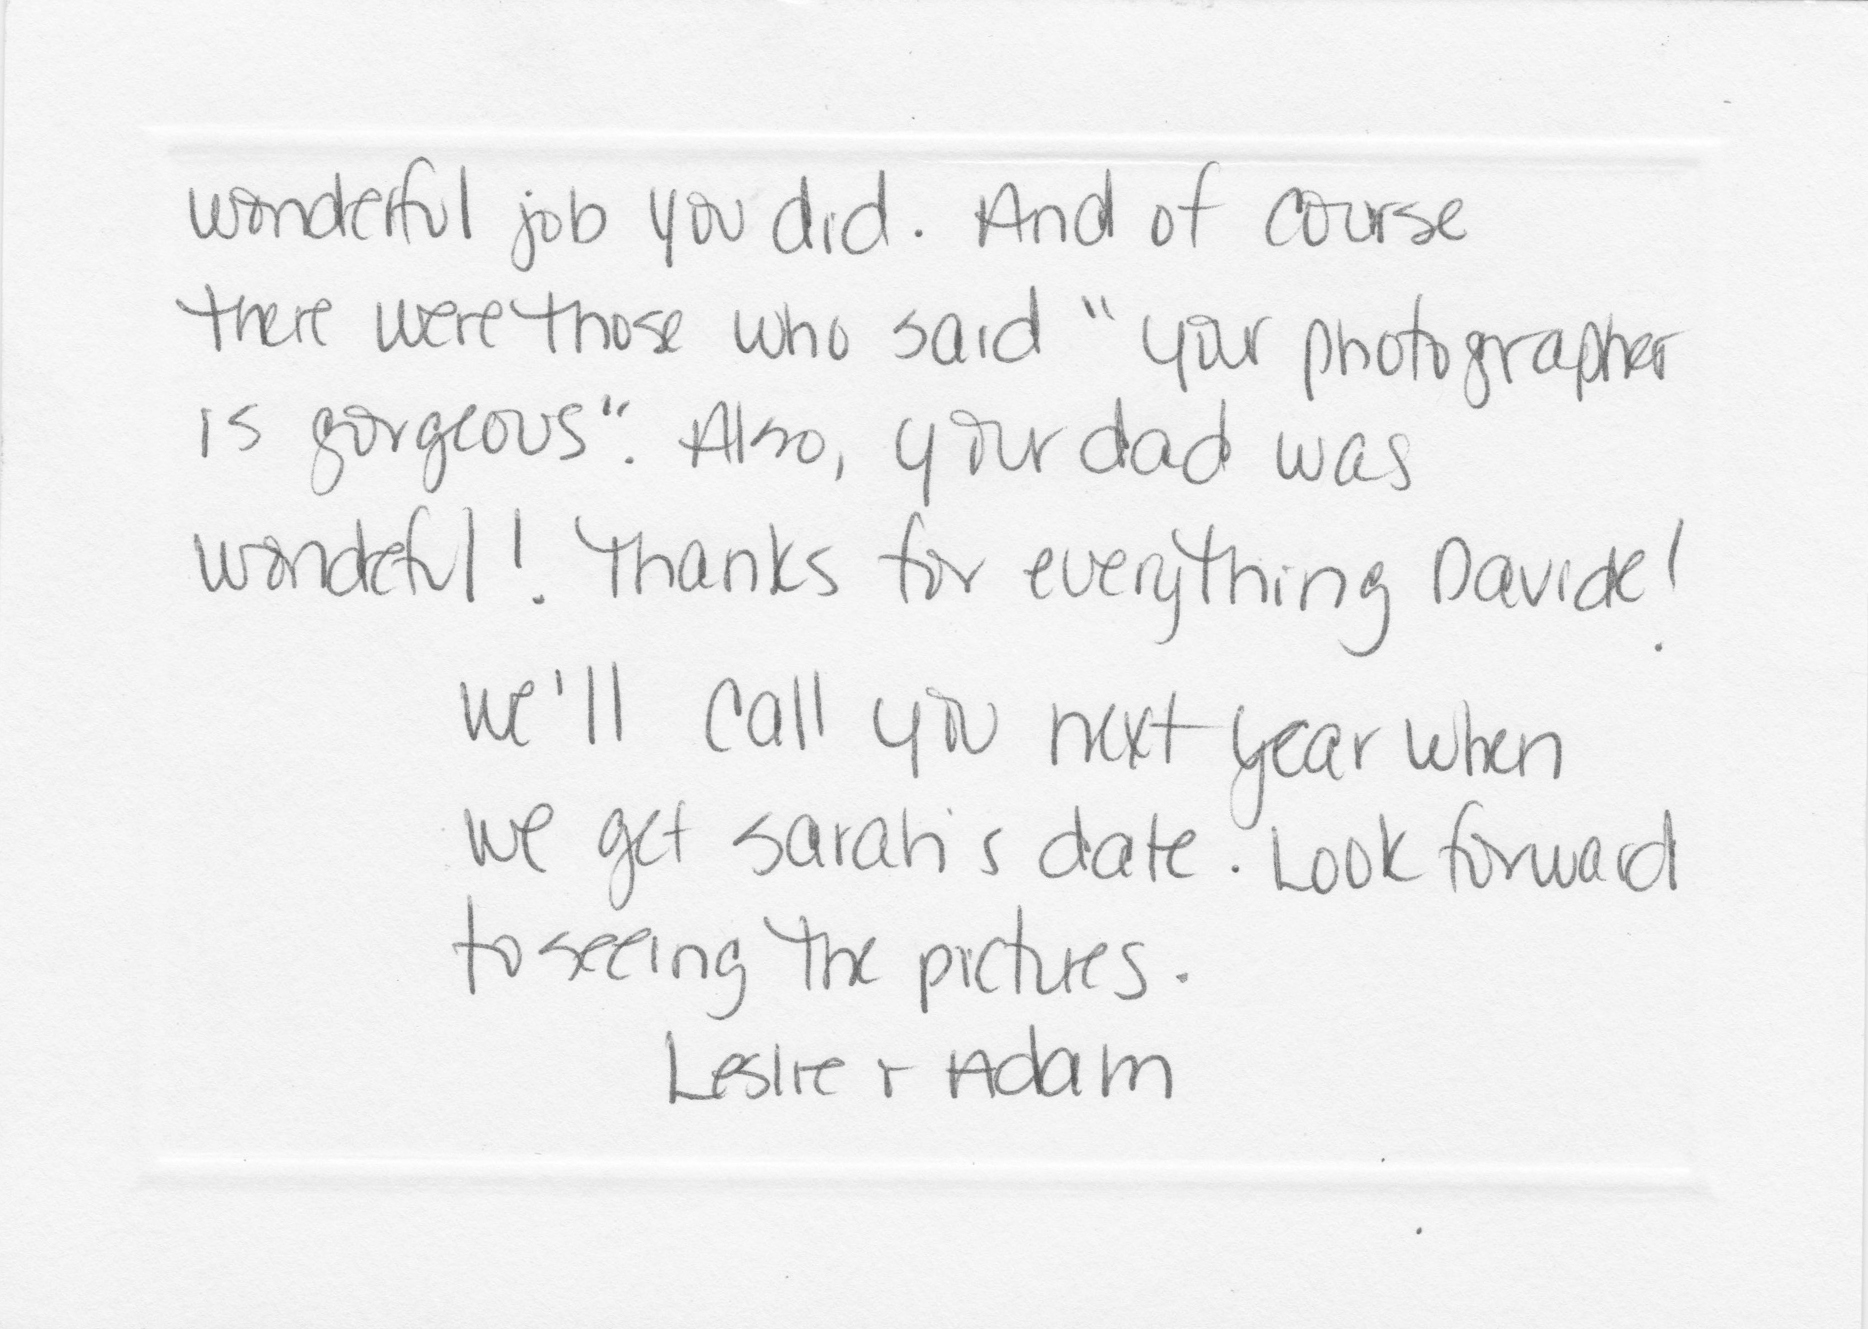 wonderful job you did. And of course
there were those who said "your photographer
is gorgeous". Also, your dad was
wondeful! Thanks for everything Davide!
We'll call you next year when
we get Sarah's date. Look forward
to seeing the pictures.
Leslie + Adam